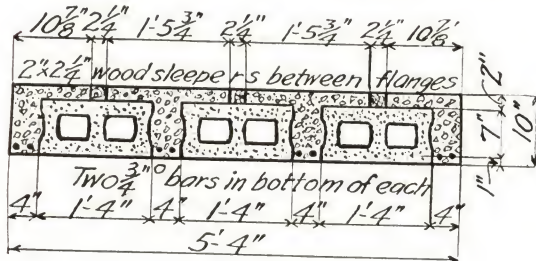 10 7/8" 2 1/4" 1'-5 3/4" 2 1/4" 1'-5 3/4" 2 1/4" 10 7/8'
2"x2 1/4" wood sleepers between flanges
2"
7"
10"
1"
Two 3/4"° bars in bottom of each
4" 1'-4" 4" 1'-4" 4" 1'-4" 4"
5'-4"